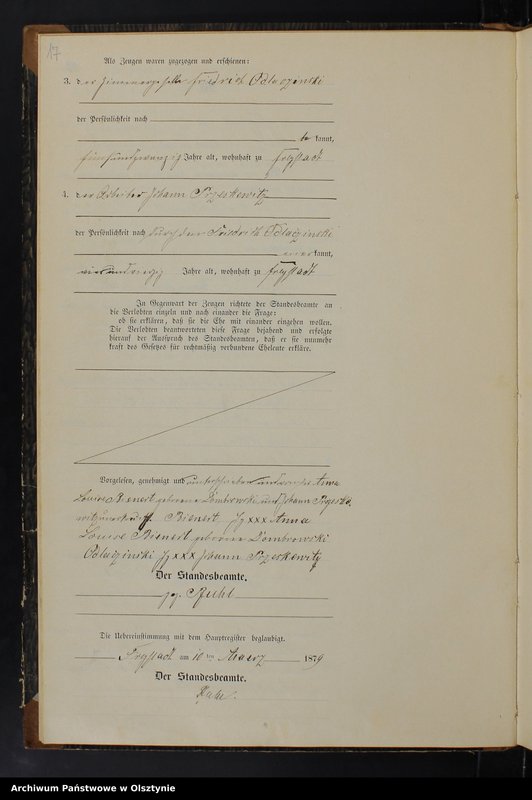 17
Als Zeugen waren zugezogen und erschienen:
3. der Zimmergeselle Friedrich Odlaczinski
der Persönlichkeit nach
be kannt,
fünfundzwanzig Jahre alt, wohnhaft zu Freystadt
4. der Arbeiter Johann Przeskewitz
der Persönlichkeit nach durch den Friedrich Odlaczinski
anerkannt,
Jahre alt, wohnhaft zu Freystadt
In Gegenwart der Zeugen richtete der Standesbeamte an
die Verlobten einzeln und nach einander die Frage:
ob sie erklären, daß sie die Ehe mit einander eingehen wollen.
Die Verlobten beantworteten diese Frage bejahend und erfolgte
hierauf der Ausspruch des Standesbeamten, daß er sie nunmehr
kraft des Gesetzes für rechtmäßig verbundene Eheleute erkläre.
Vorgelesen, genehmigt und unterschrieben und von der Anna
Louise Bienert geborene Dombrowski und Johann
Bienert, xxx Anna
Louise Bienert geborene Dombrowski
Odlaczinski xxx Johann Przeskewitz
Der Standesbeamte.
gez.
Die Uebereinstimmung mit dem Hauptregister beglaubigt.
Freystadt am 10 ten Maerz 1879
Der Standesbeamte.
Archiwum Państwowe w Olsztynie